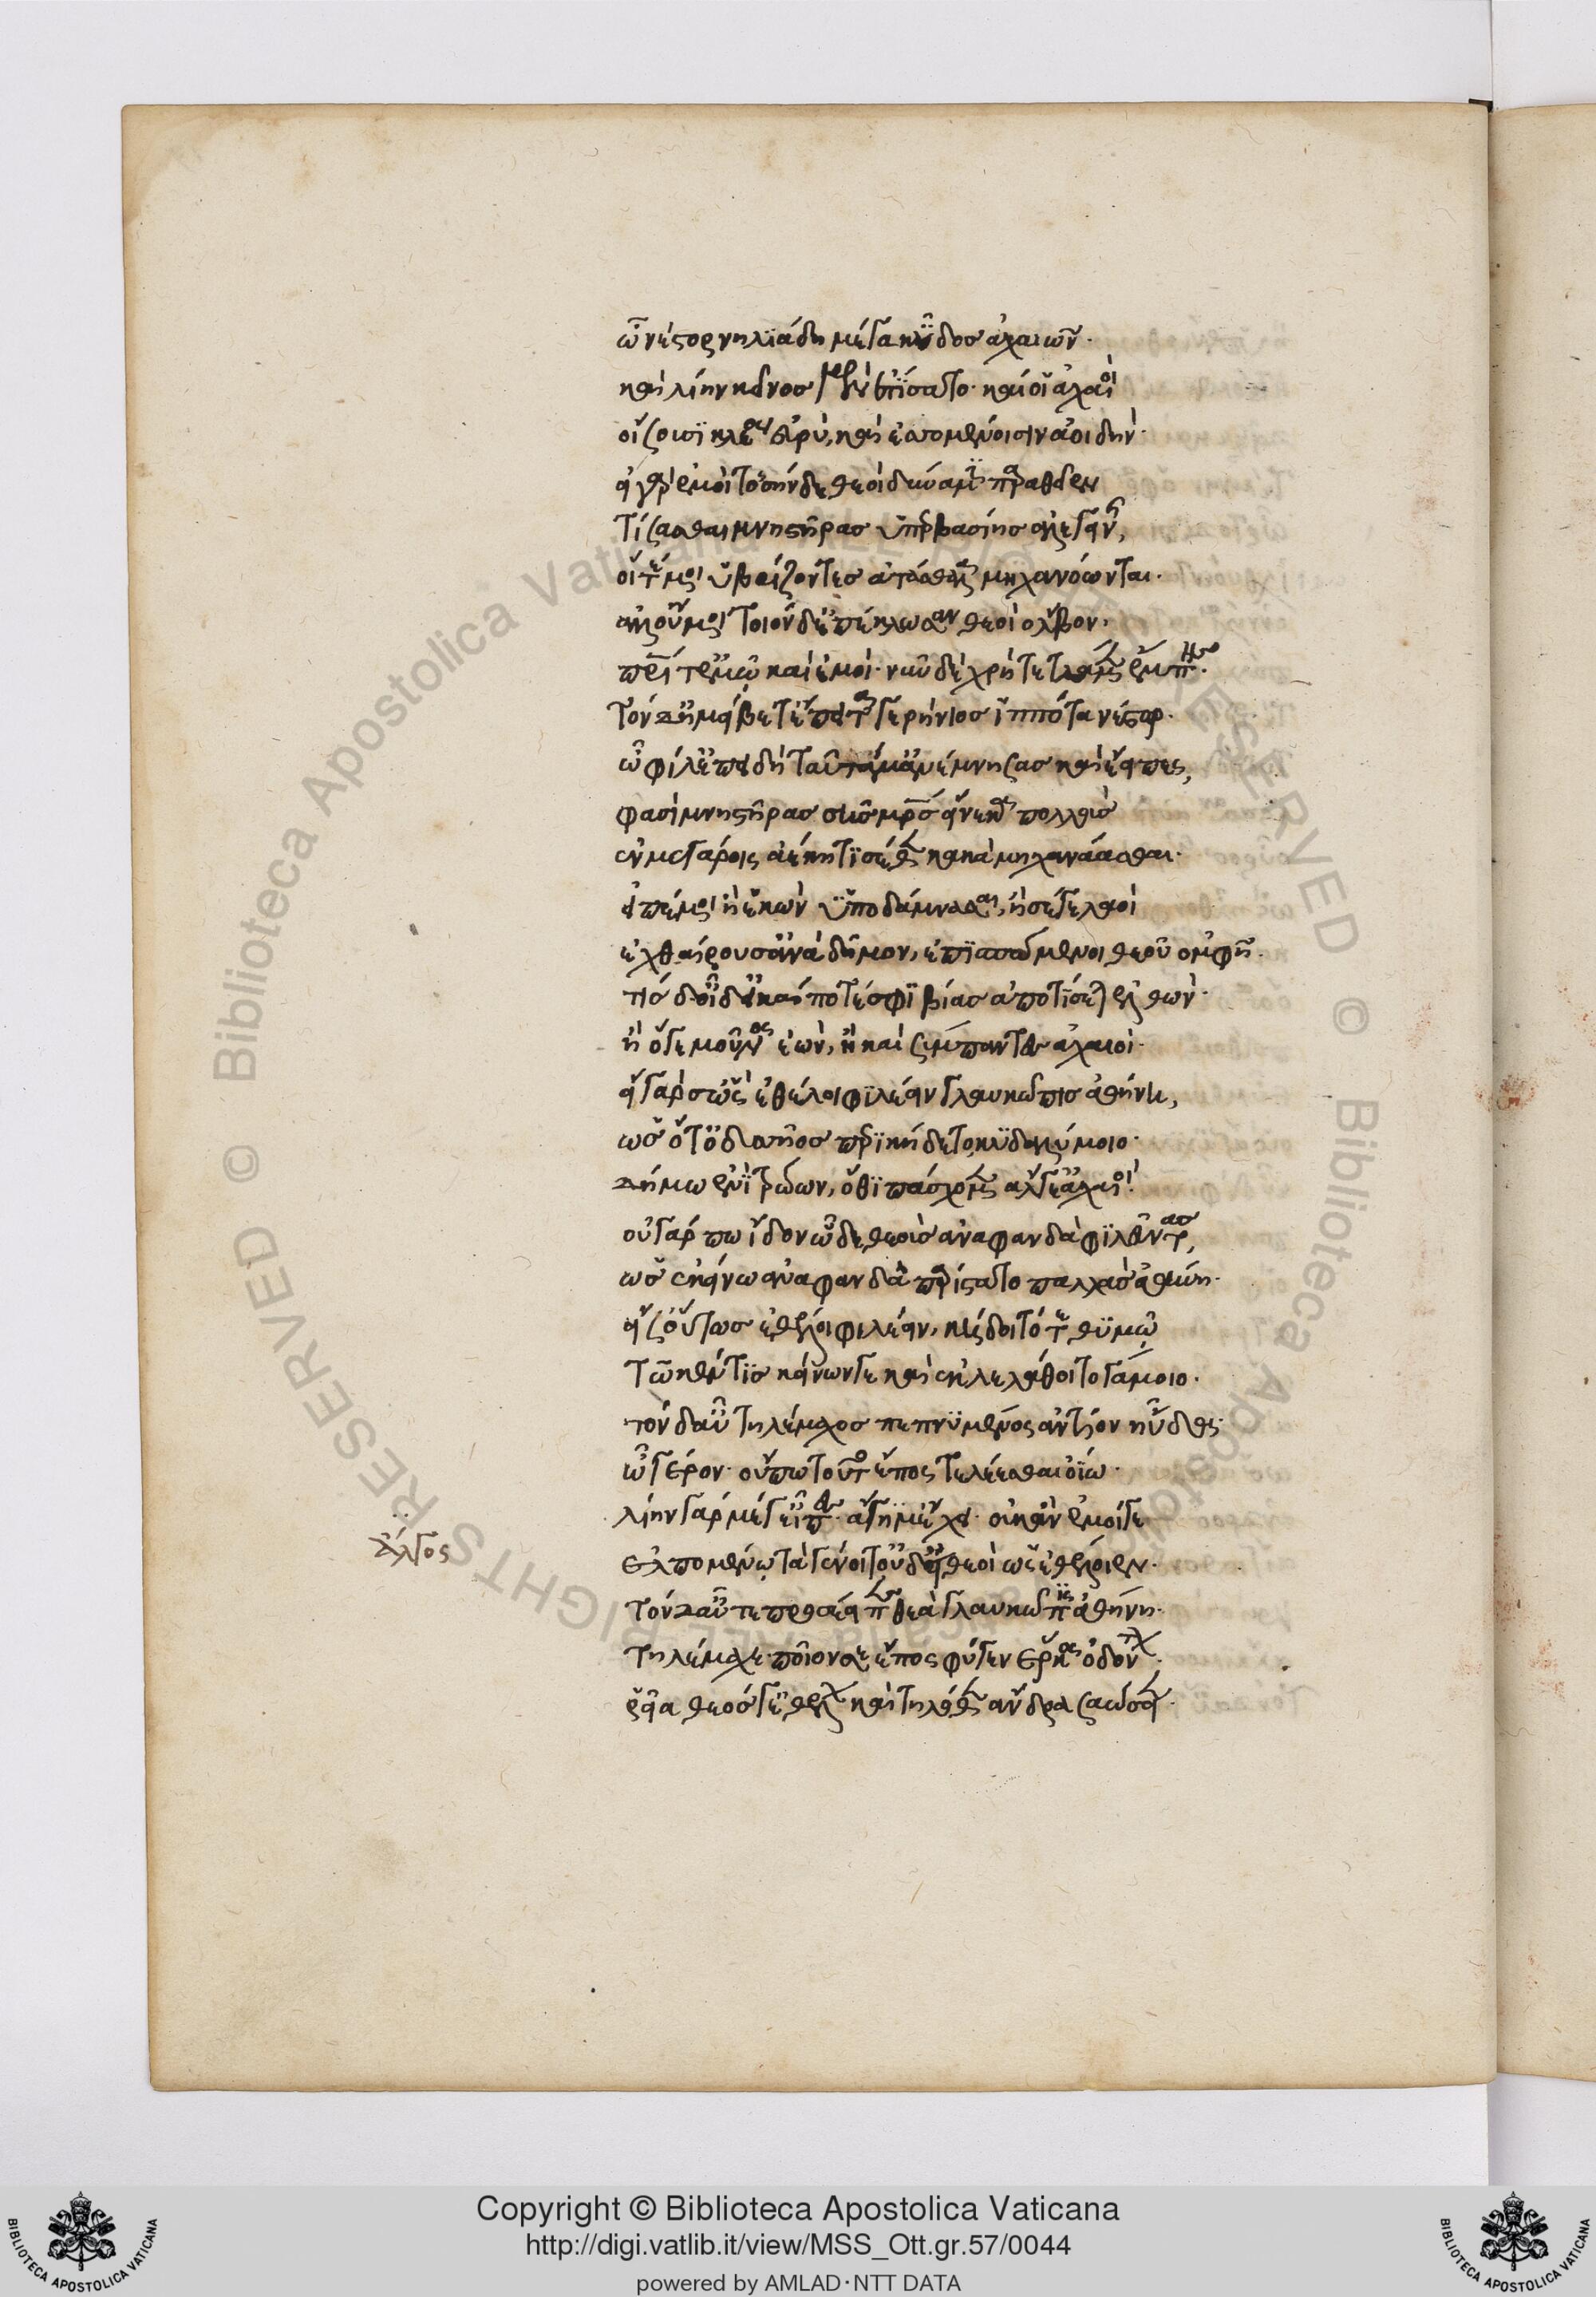 ὦ νέστορ νηληϊάδη μέγα κῦδος ἀχαιῶν.
καὶ λίην κεῖνος μὲν ἐτίσατο. καί οἱ ἀχαιοὶ
οἴσουσι κλέος εὐρὺ, καὶ ἐσσομένοισιν ἀοιδήν.
αἲ γὰρ ἐμοὶ τοσήνδε θεοὶ δύναμιν παραθεῖεν
τίσασθαι μνηστῆρας ὑπερβασίης ἀλεγεινῆς,
οἵτέ μοι ὑβρίζοντες ἀτάσθαλα μηχανόωνται.
ἀλλ' οὔ μοι τοιοῦτον ἐπέκλωσαν θεοὶ ὄλβον,
πατρί τ' ἐμῷ καὶ ἐμοί. νῦν δὲ χρὴ τετλάμεν ἔμπης.
τὸν δ' ἠμείβετ' ἔπειτα γερήνιος ἱππότα νέστωρ.
ὦ φίλ' ἐπειδὴ ταῦτά μ' ἀνέμνησας καὶ ἔειπες,
φασὶ μνηστῆρας σῆς μητέρος εἵνεκα πολλοὺς
ἐν μεγάροις ἀέκητι σέθεν κακὰ μηχανάασθαι.
εἰπέ μοι ἠὲ ἑκὼν ὑποδάμνασαι, ἦ σέ γε λαοὶ
ἐχθαίρουσ' ἀνὰ δῆμον, ἐπισπόμενοι θεοῦ ὀμφῇ.
τίς δ' οἶδ' εἴ κέ ποτέ σφι βίας ἀποτίσεαι ἐλθών.
ἢ ὅγε μοῦνος ἐὼν, ἢ καὶ σύμπαντες ἀχαιοί.
εἰ γάρ σ' ὣς ἐθέλοι φιλέειν γλαυκῶπις ἀθήνη,
ὡς τότ' ὀδυσσῆος περικήδετο κυδαλίμοιο.
δήμῳ ἐνὶ τρώων, ὅθι πάσχομεν ἄλγε' ἀχαιοί.
οὐ γάρ πω ἴδον ὧδε θεοὺς ἀναφανδὰ φιλεῦντας,
ὡς ἐκείνῳ ἀναφανδὰ παρίστατο παλλὰς ἀθήνη.
εἴ σ' οὕτως ἐθέλοι φιλέειν, κήδοιτό τε θυμῷ
τῶ κέν τις κείνων γε καὶ ἐκλελάθοιτο γάμοιο.
τὸν δ' αὖ τηλέμαχος πεπνυμένος ἀντίον ηὔδα.
ὦ γέρον. οὔπω τοῦτο ἔπος τελέεσθαι ὀΐω.
λίην γὰρ μέγα εἶπες. ἄγη μ' ἔχει. οὐκ ἂν ἐμοίγε
ἐλπομένῳ τὰ γένοιτ' οὐδ' εἰ θεοὶ ὣς ἐθέλοιεν.
τὸν δ' αὖτε προσέειπε θεὰ γλαυκῶπις ἀθήνη.
τηλέμαχε ποῖόν σε ἔπος φύγεν ἕρκος ὀδόντων.
ῥεῖα θεός γ' ἐθέλων καὶ τηλόθεν ἄνδρα σαώσαι.